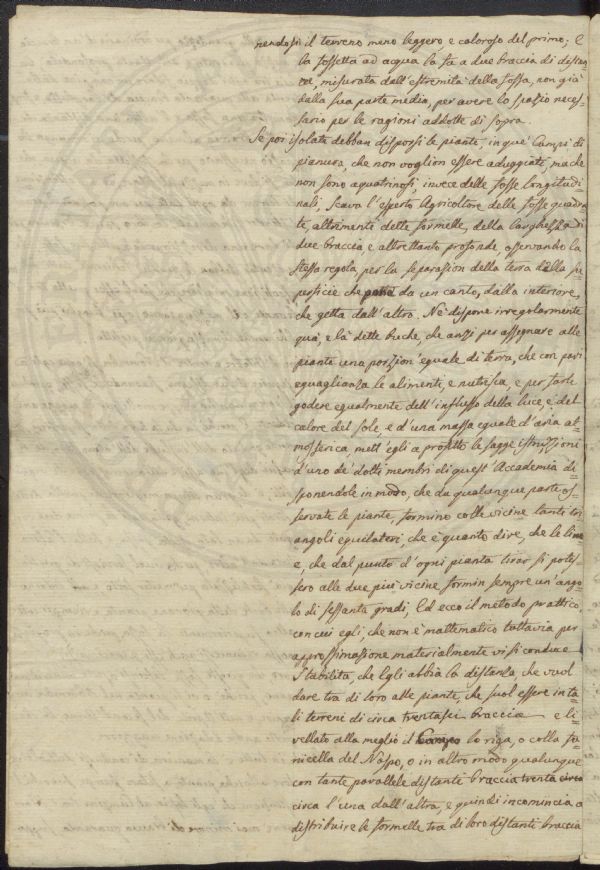 nendosi il terreno meno leggero, e caloroso del primo; E
la fossetta ad acqua la fa a due braccia di distan=
ze, misurata dall'estremità della fossa, non già
dalla sua parte media, per avere lo spazio neces=
sario per le ragioni addotte di sopra.
Se poi isolate debban disporsi le piante, in que' Campi di
pianura, che non voglion essere aduggiati, ma che
non sono aquatrinosi, invece delle fosse longitudi=
nali, scava l'esperto Agricoltore delle fosse quadra=
te, altrimenti dette formelle, della larghezza di
due braccia e altrettanto profonde, osservando la
stessa regola, per la separazion della terra della su=
perficie che da un canto, dalla interiore,
che getta dall'altro. Nè dispone irregolarmente
quà, e là dette buche, che anzi per assegnare alle
piante una porzion' eguale di terra, che con pari
eguaglianza le alimenti, e nutrisca, e per farle
godere egualmente dell'influsso della luce, e del
calore del sole e d'una massa eguale d'aria at=
mosferica, mett'egli a profitto le sagge istruzzioni
d'uno de' dotti membri di quest'Accademia di=
sponendole in modo, che da qualunque parte os=
servate le piante, formino colle vicine tanti tri=
angoli equilateri, che è quanto dire, che le line
e, che dal punto d'ogni pianta tirar si potes=
sero alle due più vicine formin sempre un'ango=
lo di sessanta gradi; Ed ecco il metodo prattico,
con cui egli, che non è mattematico tuttavia per
approssimazione materialmente vi si conduce
Stabilita, che Egli abbia la distanza, che vuol
dare tra di loro alle piante, che suol essere in ta=
li terreni di circa trentasei braccia e li=
vellato alla meglio il Campo lo riga, o colla fu=
nicella del Naspo, o in altro modo qualunque
con tante parallele distanti braccia trenta circa
circa l'una dall'altra, e quindi incomincia a
distribuire le formelle tra di loro distanti braccia